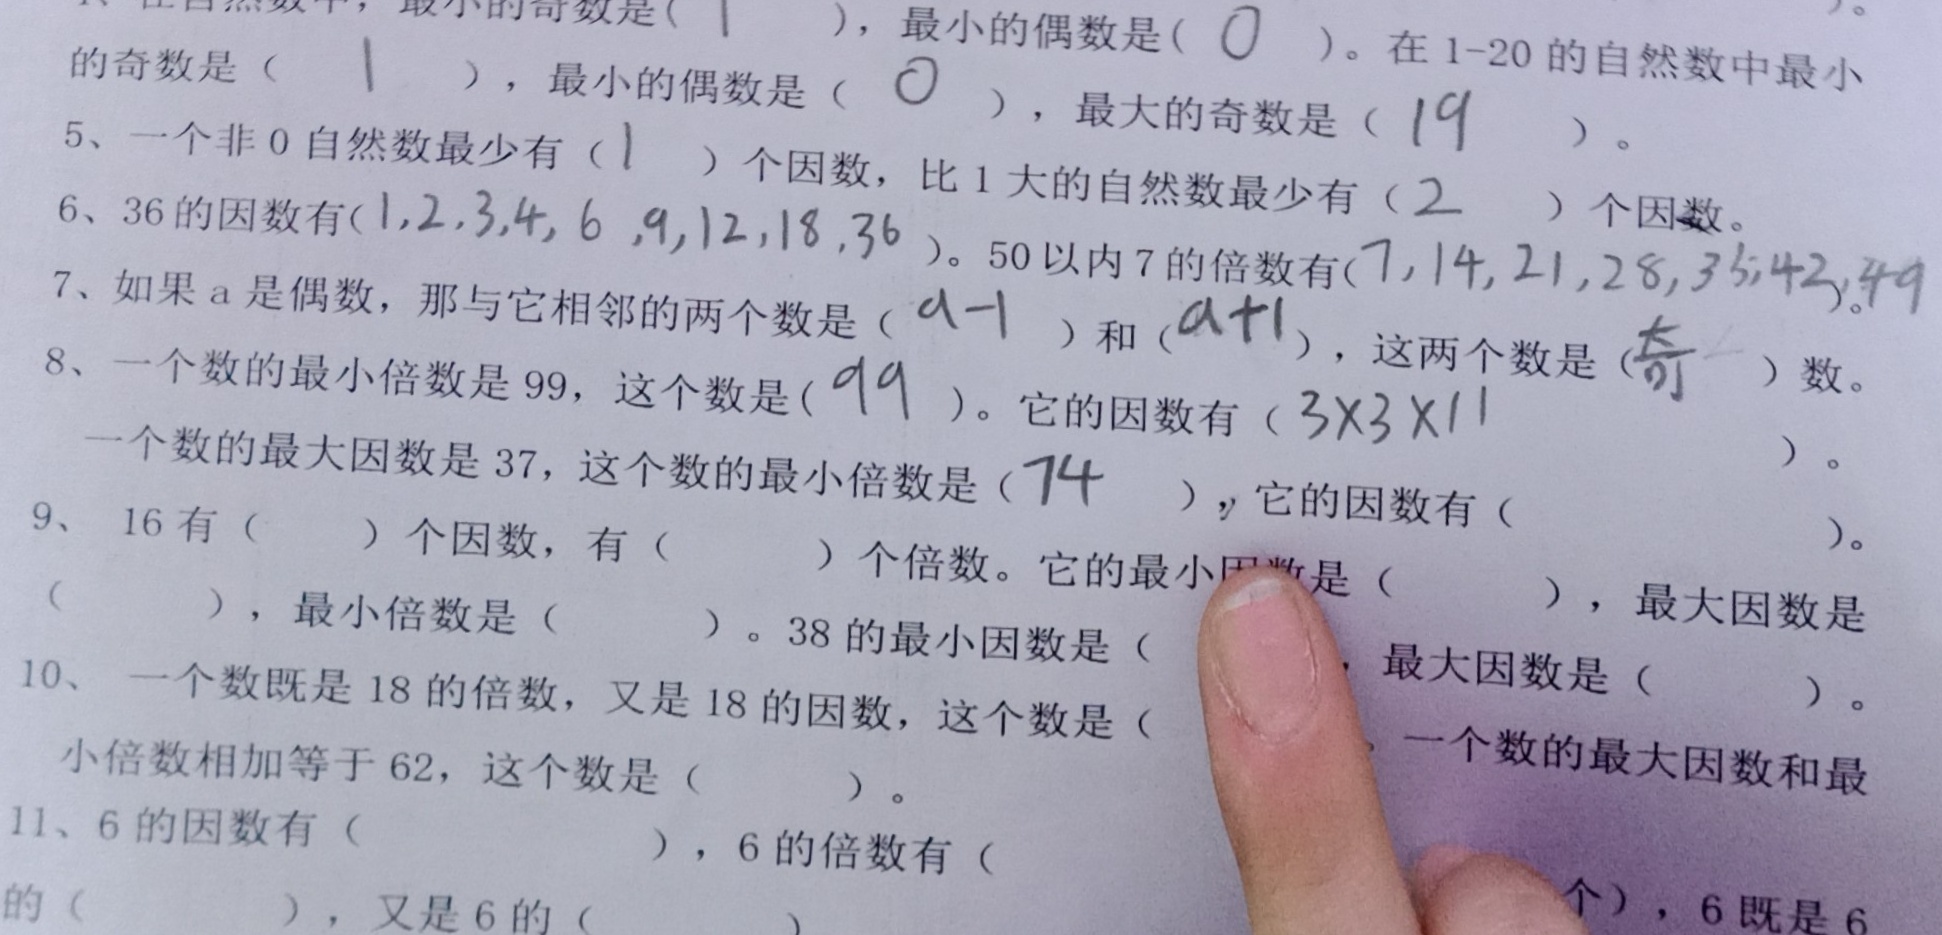 4、在自然数中，最小的奇数是( 1 )，最小的偶数是( 0 )。在 1-20 的自然数中最小
的奇数是（ 1 ），最小的偶数是（ 0 ），最大的奇数是（ 19 ）。
5、一个非 0 自然数最少有（ 1 ）个因数，比 1 大的自然数最少有（ 2 ）个因数。
6、36 的因数有(1,2,3,4,6,9,12,18,36)。50 以内 7 的倍数有(7,14,21,28,35,42,49)。
7、如果 a 是偶数，那与它相邻的两个数是（ a-1 ）和（ a+1 ），这两个数是（ 奇 ）数。
8、一个数的最小倍数是 99，这个数是( 99 )。它的因数有（ 3×3×11 ）。
一个数的最大因数是 37，这个数的最小倍数是（ 74 ），它的因数有（ ）。
9、 16 有（ ）个因数，有（ ）个倍数。它的最小因数是（ ），最大因数是
（ ），最小倍数是（ ）。38 的最小因数是（ ，最大因数是（ ）。
10、 一个数既是 18 的倍数，又是 18 的因数，这个数是（ 一个数的最大因数和最
小倍数相加等于 62，这个数是（ ）。
11、6 的因数有（ ），6 的倍数有（ 个），6 既是 6
的（ ），又是 6 的（ ）